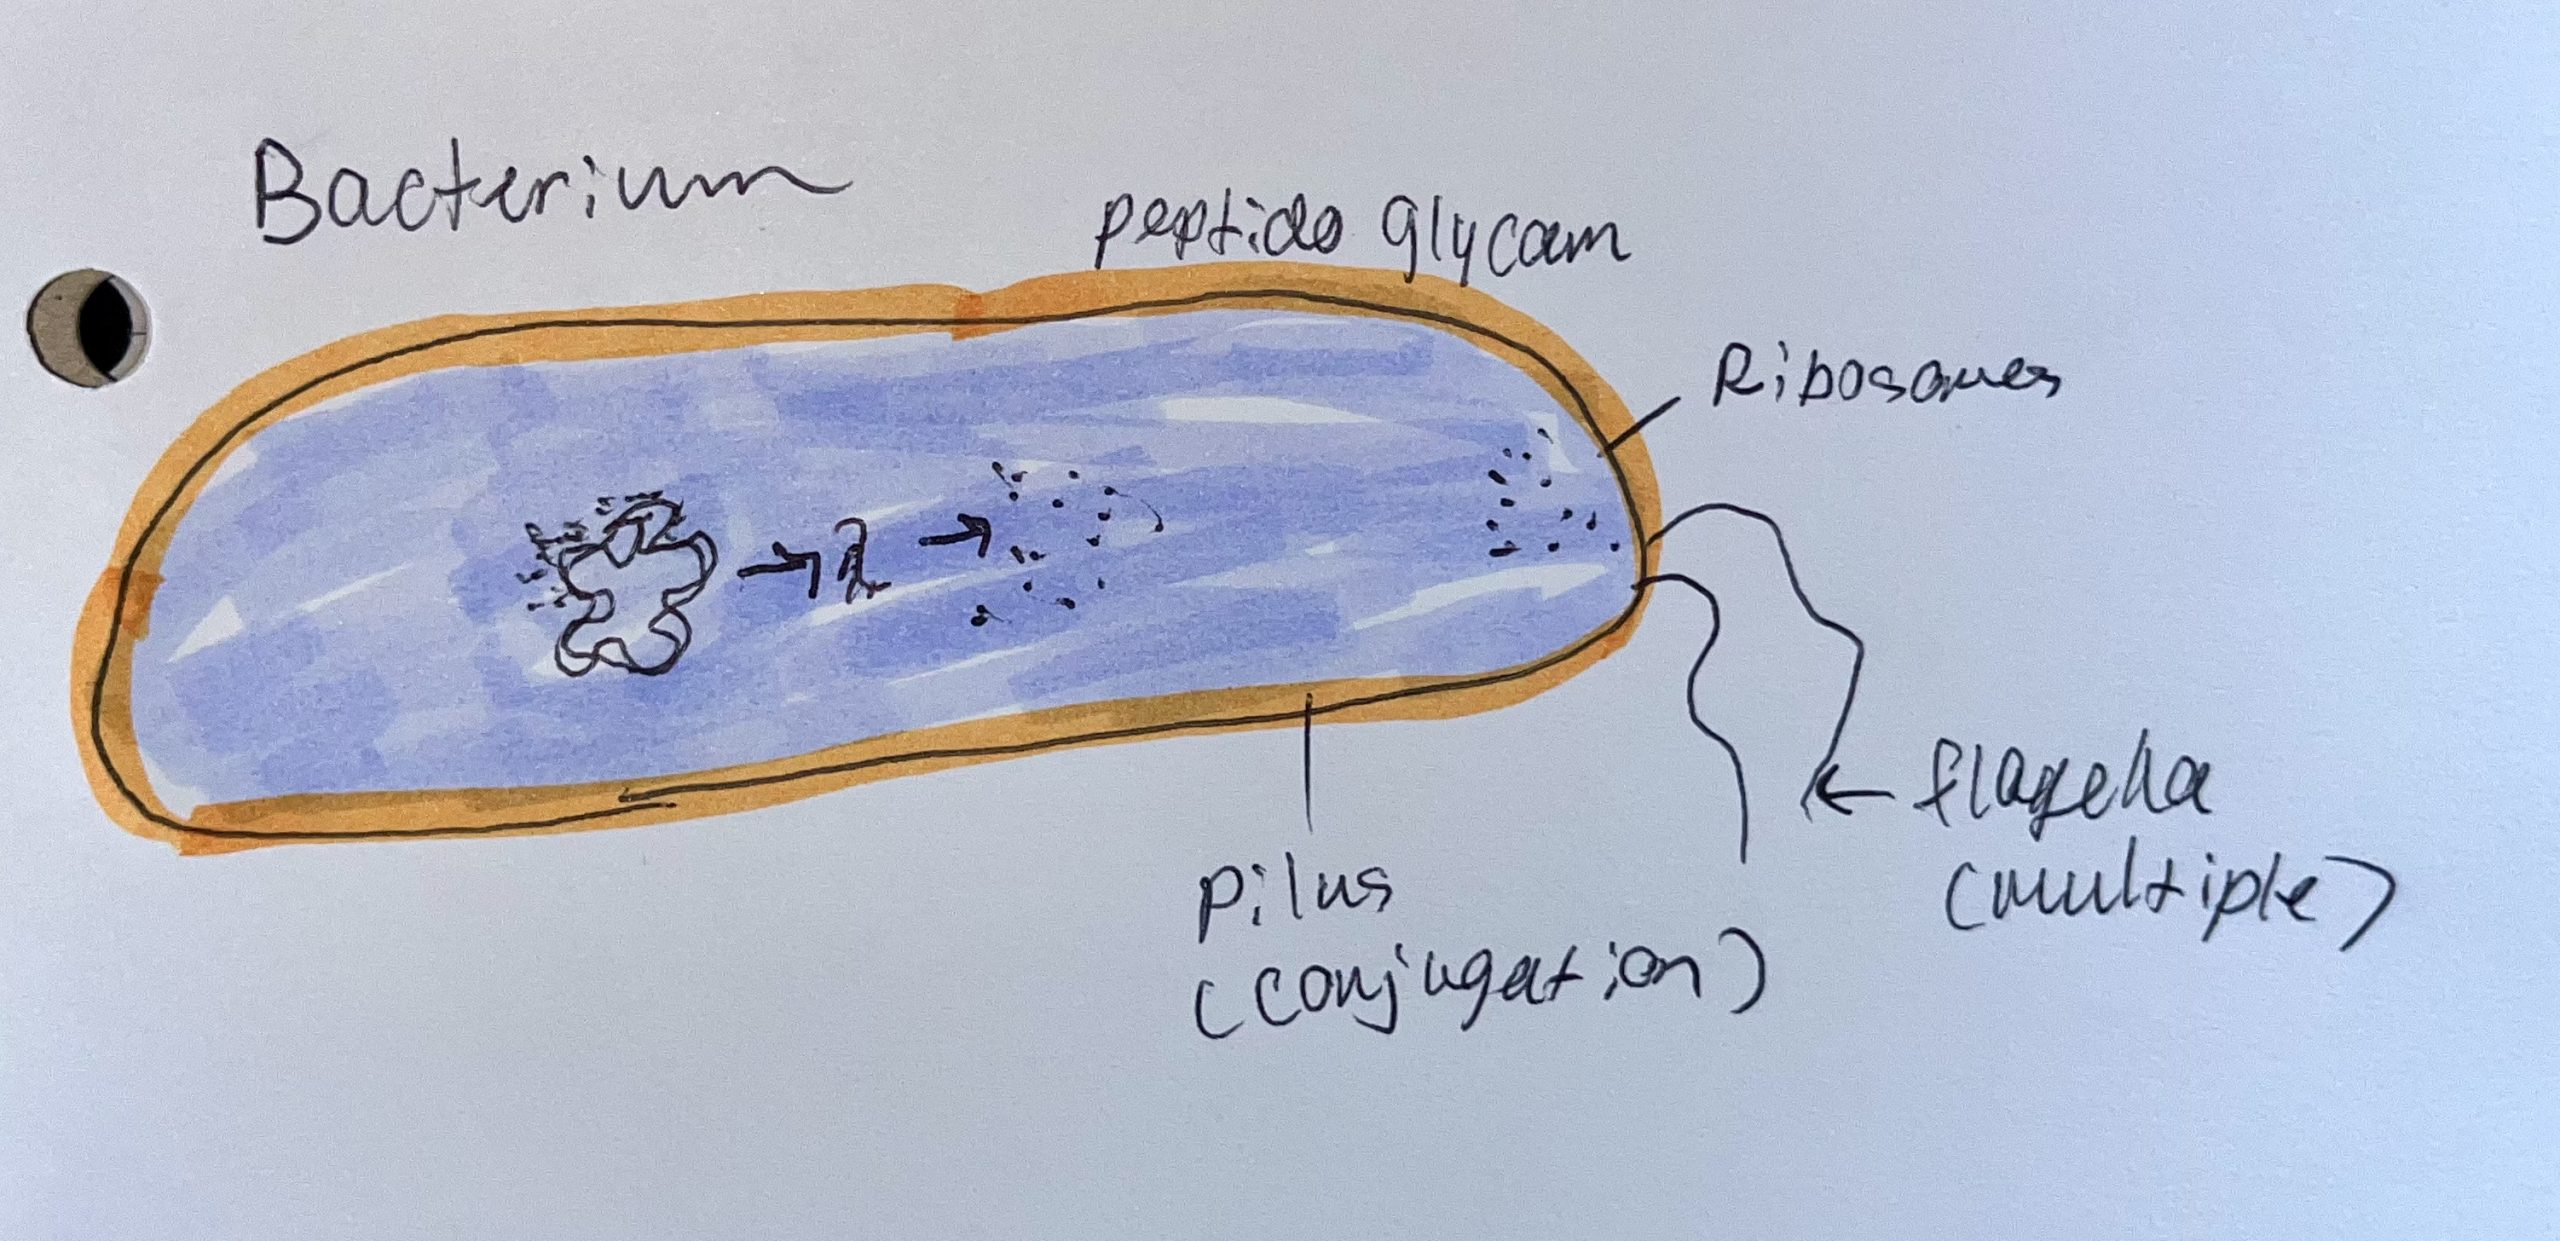 Bacterium
peptido glycan
Ribosomes
flagella
(multiple)
Pilus
(conjugation)